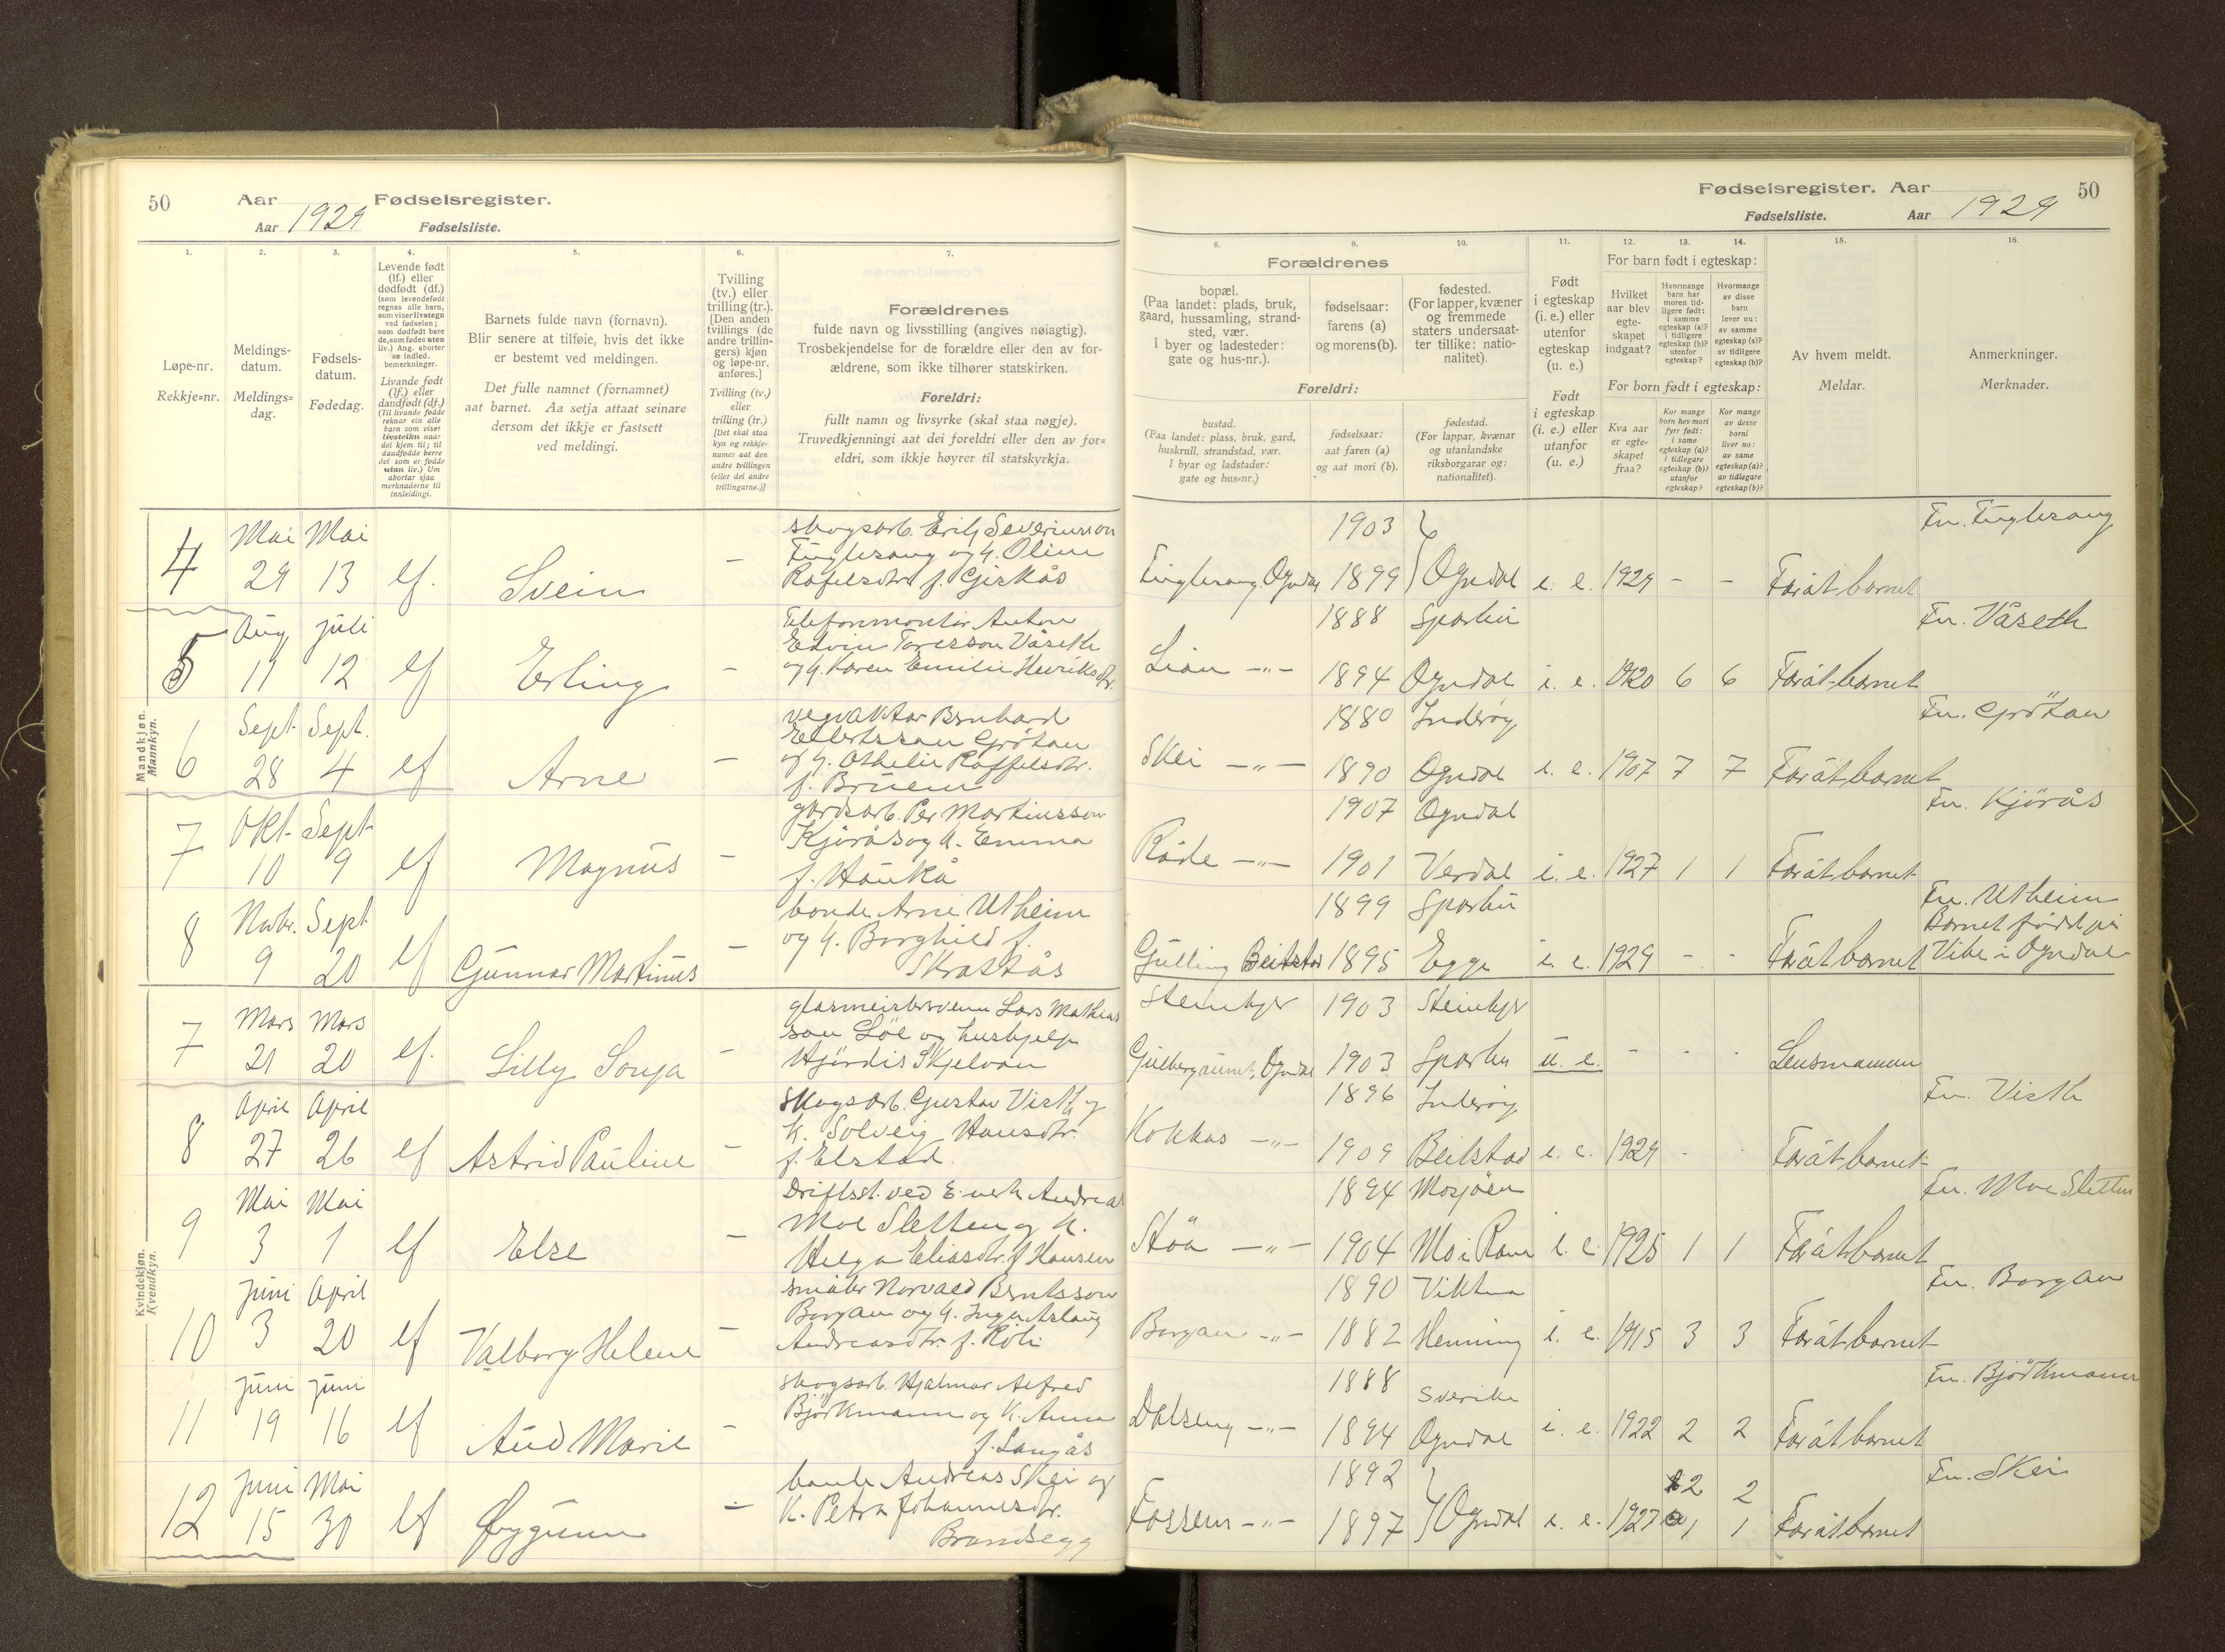 50 Aar Fødselsregister.
Aar 1929 Fødselsliste.
1. 2. 3. 4. 5. 6. 7.
Løpe-nr.
Rekkje=nr.
Meldings-
datum.
Meldings=
dag.
Fødsels-
datum.
Fødedag.
Levende født
(lf.) eller
dødfødt (df.)
(som levendefødt
regnes alle barn,
som viser livstegn
ved fødselen;
som dødfødt bare
de, som fødes uten
liv.) Ang. aborter
se indled.
bemerkninger.
Livande født
(lf.) eller
daudfødt (df.)
(Til livande fødde
reknar ein alle
barn som viser
livsteikn naar
dei kjem til; til
daudfødde berre
dei som er fødde
utan liv.) Um
abortar sjaa
merknaderne til
innleidingi.
Barnets fulde navn (fornavn).
Blir senere at tilføie, hvis det ikke
er bestemt ved meldingen.
Det fulle namnet (fornamnet)
aat barnet. Aa setja attaat seinare
dersom det ikkje er fastsett
ved meldingi.
Tvilling
(tv.) eller
trilling (tr.).
[Den anden
tvillings (de
andre trillin-
gers) kjøn
og løpe-nr.
anføres.]
Tvilling (tv.)
eller
trilling (tr.)
[Det skal staa
kyn og rekkje-
numer aat den
andre tvillingen
(eller dei andre
trillingarne.)]
Forældrenes
fulde navn og livsstilling (angives nøiagtig).
Trosbekjendelse for de forældre eller den av for-
ældrene, som ikke tilhører statskirken.
Foreldri:
fullt namn og livsyrke (skal staa nøgje).
Truvedkjenningi aat dei foreldri eller den av for=
eldri, som ikkje høyrer til statskyrkja.
Mandkjøn.
Mannkyn.
4 Mai 29 Mai 13 lf. Svein –
skogsarb. Erik Severinsson
Fuglesang og h. Oline
Rafelsdtr. f. Gjskås
5 Aug 11 juli 12 lf Erling –
telefonmontör Anton
Edvin Toresson Våseth
og h. Karen Emilie Henriksdtr.
6 Sept. 28 Sept. 4 lf Arne –
vegvaktar Bernhard
Grötan
og h. Othelie Raffelsdtr.
f. Bruem
7 Okt. 10 Sept. 9 lf Magnus –
gårdsarb. Per Martinsson
Kjørås og h. Emma
f. Hauka
8 Novbr. 9 Sept 20 lf Gunnar Martinus –
bonde Arne Utheim
og h. Borghild f.
Skrattås
Kvindekjøn.
Kvendkyn.
7 Mars 21 Mars 20 lf. Lilly Sonja –
glasmeistersvenn Lars Mathias
son Löe og hushjelp
Hjørdis Skjelvan
8 April 27 April 26 lf Astrid Pauline –
Skogsarb. Gustav Visth og
k. Solveig Hansdtr.
f. Elstad
9 Mai 3 Mai 1 lf Else –
Driftsst. ved E.verk Andreas
Moe Sletten og k.
Helga Eliasdtr. f. Hansen
10 Juni 3 April 20 lf Valborg Helene –
småbr Norvald Berntsson
Borgan og h. Inger Aslaug
Andreasdtr. f. Röli
11 juni 19 juni 16 lf Aud Marie –
skogsarb. Hjalmar Alfred
Björkmann og k. Anna
f. Langås
12 juni 15 Mai 30 lf Øygunn –
bonde Andreas Skei og
k. Petra Johannesdtr.
Brandsegg
Fødselsregister. Aar 50
Fødselsliste. Aar 1929
8. 9. 10. 11. 12. 13. 14. 15. 16.
Forældrenes
bopæl.
(Paa landet: plads, bruk,
gaard, hussamling, strand-
sted, vær.
I byer og ladesteder:
gate og hus-nr.).
fødselsaar:
farens (a)
og morens (b).
fødested.
(For lapper, kvæner
og fremmede
staters undersaat-
ter tillike: natio-
nalitet).
Foreldri:
bustad.
(Paa landet: plass, bruk, gard,
huskrull, strandstad, vær.
I byar og ladstader:
gate og hus=nr.)
fødselsaar:
aat faren (a)
og aat mori (b).
fødestad.
(For lappar, kvænar
og utanlandske
riksborgarar og:
nationalitet).
Født
i egteskap
(i. e.) eller
utenfor
egteskap
(u. e.)
Født
i egteskap
(i. e.) eller
utanfor
(u. e.)
For barn født i egteskap:
Hvilket
aar blev
egte-
skapet
indgaat?
Hvormange
barn har
moren tid-
ligere født:
i samme
egteskap (a)?
i tidligere
egteskap (b)?
utenfor
egteskap?
Hvormange
av disse
barn
lever nu:
av samme
egteskap (a)?
av tidligere
egteskap (b)?
For born født i egteskap:
Kva aar
er egte-
skapet
fraa?
Kor mange
born hev mori
fyrr født:
i same
egteskap (a)?
i tidlegare
egteskap (b)?
utanfor
egteskap?
Kor mange
av desse
borni
liver no:
av same
egteskap (a)?
av tidlegare
egteskap (b)?
Av hvem meldt.
Meldar.
Anmerkninger.
Merknader.
1903 Fn. Fuglesang
Fuglesang, Ogndal 1899 Ogndal i. e. 1929 – – Far åt barnet
1888 Sparbu Fn. Våseth
Lian –"– 1894 Ogndal i. e. 1920 6 6 Far åt barnet
1880 Inderøy Fn. Grötan
Skei –"– 1890 Ogndal i. e. 1907 7 7 Far åt barnet
1907 Ogndal Fn. Kjörås
Råde –"– 1901 Verdal i. e. 1927 1 1 Far åt barnet
1899 Sparbu Fn. Utheim
Barnet født på
Gulling Beitstad 1895 Egge i. e. 1929 - - Far åt barnet Vibe i Ogndal
Steinkjer 1903 Steinkjer
Gulbergaunet, Ogndal 1903 Sparbu u. e. - - - Lensmannen
1896 Inderøy Fn. Visth
Kokkas –"– 1909 Beitstad i. e. 1929 - - Far åt barnet
1894 Mosjøen Fn. Moe Sletten
Støa –"– 1904 Mo i Rana i. e. 1925 1 1 Far åt barnet
1890 Viktna Fn. Borgan
Borgan –"– 1882 Henning i. e. 1915 3 3 Far åt barnet
1888 Sverike Fn. Björkmann
Dalseng –"– 1894 Ogndal i. e. 1922 2 2 Far åt barnet
1892 2 2 Fn. Skei
Fossem –"– 1897 Ogndal i. e. 1927 1 1 Far åt barnet